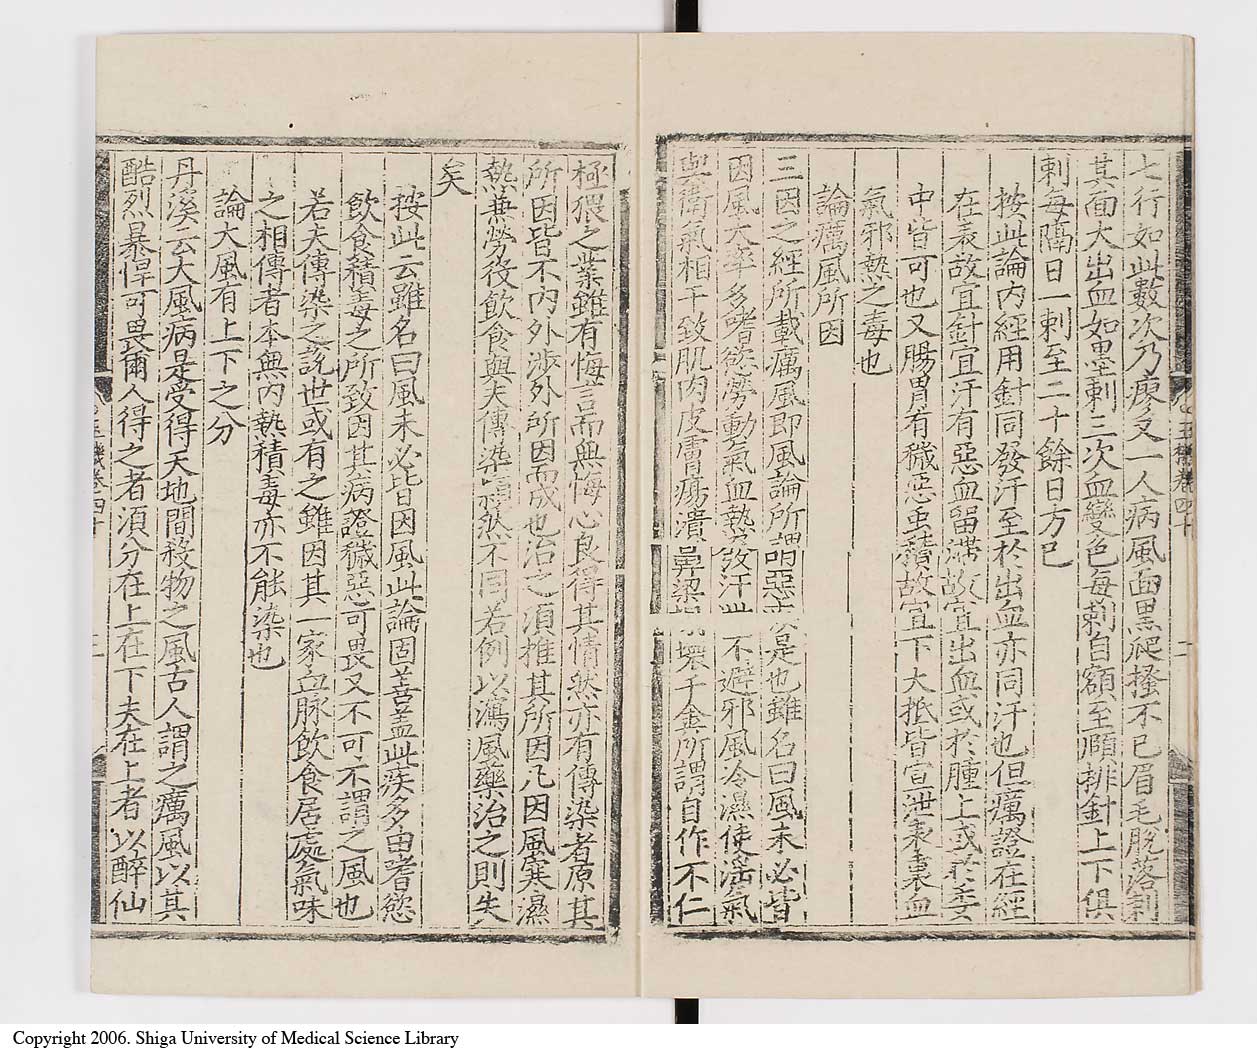 七行如此數次乃瘳又一人病風面黑爬搔不已眉毛脫落刺
其面大出血如墨刺三次血變色每刺自額至頤排針上下俱
刺每隔日一刺至二十餘日方已
按此論內經用針同發汗至於出血亦同汗也但癘證在經
在表故宜針宜汗有惡血留滯故宜出血或於腫上或於委
中皆可也又腸胃有穢惡蟲積故宜下大抵皆宣泄表裏血
氣邪熱之毒也
論癘風所因
三因之經所載癘風即風論所謂惡疾是也雖名曰風未必皆
因風大率多嗜慾勞動氣血熱發汗出不避邪風冷濕使淫氣
與衛氣相干致肌肉皮膚瘍潰鼻梁塌壞千金所謂自作不仁
極猥之業雖有悔言而無悔心良得其情然亦有傳染者原其
所因皆不內外涉外所因而成也治之須推其所因凡因風寒濕
熱兼勞役飲食與夫傳染頓然不同若例以瀉風藥治之則失
矣
按此云雖名曰風未必皆因風此論固善蓋此疾多由嗜慾
飲食積毒之所致因其病證穢惡可畏又不可不謂之風也
若夫傳染之說世或有之雖因其一家血脉飲食居處氣味
之相傳者本無內熱積毒亦不能染也
論大風有上下之分
丹溪云大風病是受得天地間殺物之風古人謂之癘風以其
酷烈暴悍可畏爾人得之者須分在上在下夫在上者以醉仙
玉機卷四十
二
Copyright 2006. Shiga University of Medical Science Library